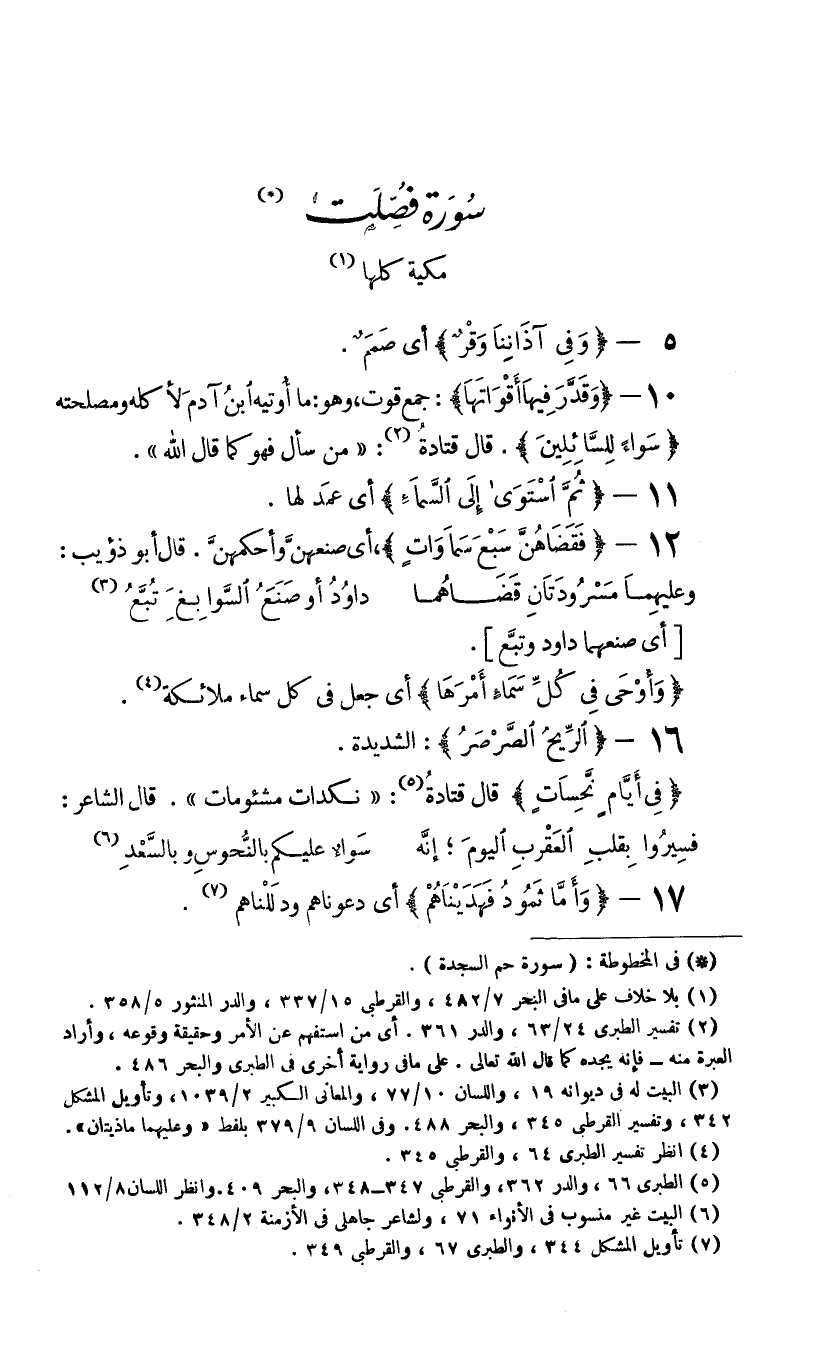 سُورَة فُصِّلَت (*)
مكية كلها (١)
٥ — ﴿ وَفِى آذَانِنَا وَقْرٌ ﴾ أى صَمَمٌ .
١٠ — ﴿ وَقَدَّرَ فِيهَا أَقْوَاتَهَا ﴾ : جمع قوت ، وهو : ما أُوتيه ٱبنُ آدمَ لأكله ومصلحته
﴿ سَوَاءً لِلسَّائِلِينَ ﴾ . قال قتادةُ (٢) : « من سأل فهو كما قال الله » .
١١ — ﴿ ثُمَّ ٱسْتَوَىٰ إِلَى ٱلسَّمَاءِ ﴾ أى عمَد لها .
١٢ — ﴿ فَقَضَاهُنَّ سَبْعَ سَمَاوَاتٍ ﴾ ، أى صنعهنَّ وأحكمهنَّ . قال أبو ذؤيب :
وعليهِما مَسْرُودَتَانِ قَضَاهُما داوُدُ أو صَنَعُ ٱلسَّوابِغِ تُبَّعُ (٣)
[ أى صنعهما داود وتبَّع ] .
﴿ وَأَوْحَى فِى كُلِّ سَمَاءٍ أَمْرَهَا ﴾ أى جعل فى كل سماء ملائكة (٤) .
١٦ — ﴿ ٱلرِّيحُ ٱلصَّرْصَرُ ﴾ : الشديدة .
﴿ فِى أَيَّامٍ نَّحِسَاتٍ ﴾ قال قتادةُ (٥) : « نكدات مشئومات » . قال الشاعر :
فسِيرُوا بِقلبِ ٱلعَقْربِ ٱليومَ ؛ إنَّه سَواءٌ عليكم بالنُّحوسِ وبالسَّعْدِ (٦)
١٧ — ﴿ وَأَمَّا ثَمُودُ فَهَدَيْنَاهُمْ ﴾ أى دعوناهم ودلَلْناهم (٧) .
(*) فى المخطوطة : ( سورة حم السجدة ) .
(١) بلا خلاف على مافى البحر ٤٨٢/٧ ، والقرطبى ٣٣٧/١٥ ، والدر المنثور ٣٥٨/٥ .
(٢) تفسير الطبرى ٦٣/٢٤ ، والدر ٣٦١ . أى من استفهم عن الأمر وحقيقة وقوعه ، وأراد
العبرة منه — فإنه يجده كما قال الله تعالى . على مافى رواية أخرى فى الطبرى والبحر ٤٨٦ .
(٣) البيت له فى ديوانه ١٩ ، واللسان ٧٧/١٠ ، والمعانى الكبير ١٠٣٩/٢ ، وتأويل المشكل
٣٤٢ ، وتفسير القرطبى ٣٤٥ ، والبحر ٤٨٨ . وفى اللسان ٣٧٩/٩ بلفط « وعليهما ماذيتان » .
(٤) انظر تفسير الطبرى ٦٤ ، والقرطبى ٣٤٥ .
(٥) الطبرى ٦٦ ، والدر ٣٦٢ ، والقرطبى ٣٤٧—٣٤٨ ، والبحر ٤٠٩ . وانظر اللسان ١١٢/٨
(٦) البيت غير منسوب فى الأنواء ٧١ ، ولشاعر جاهلى فى الأزمنة ٣٤٨/٢ .
(٧) تأويل المشكل ٣٤٤ ، والطبرى ٦٧ ، والقرطبى ٣٤٩ .